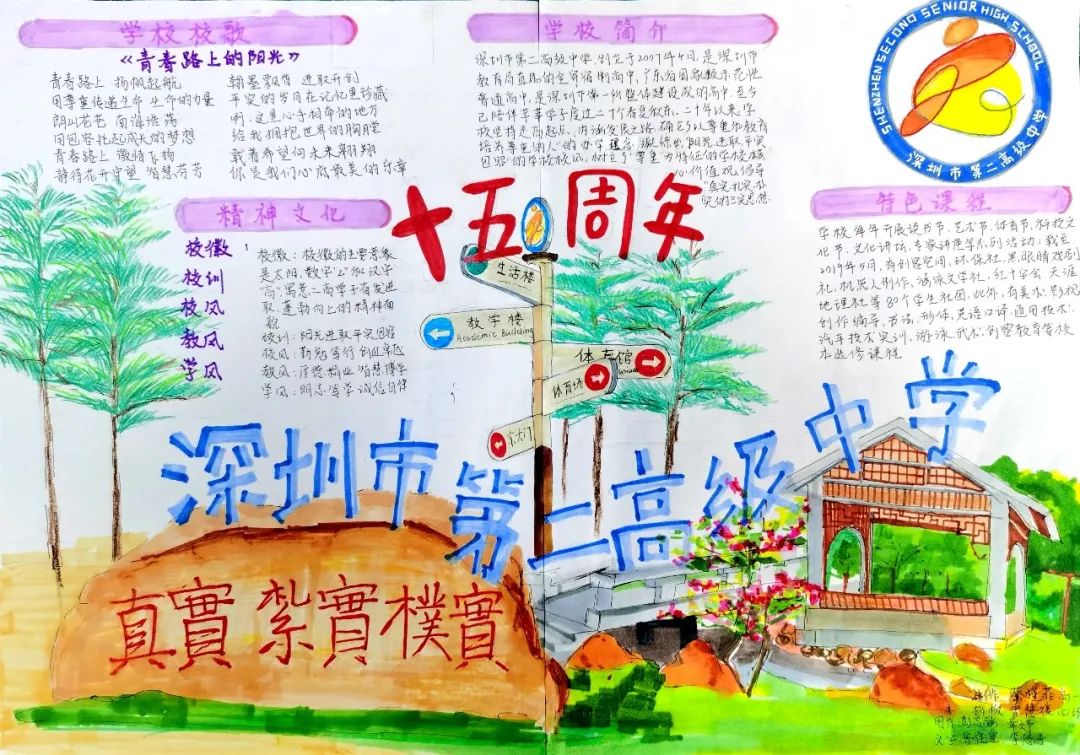 学校校歌
《青春路上的阳光》
青春路上 扬帆起航
用尊重传递生命 生命的力量
朗山苍苍 南海浩荡
用包容托起成长的梦想
青春路上 激情飞扬
静待花开守望 智慧芬芳
翰墨飘香 进取开创
平实的岁月在记忆里珍藏
啊,这里心手相牵的地方
给我拥抱世界的胸膛
载着希望向未来翱翔
你是我们心底最美的乐章
学校简介
深圳市第二高级中学,创立于2007年4月,是深圳市
教育局直属的全寄宿制高中,广东省国家级示范性
普通高中,是深圳市第一所整体建设成的高中,至今
已陪伴莘莘学子度过二十个春夏秋冬。二十年以来,学
校坚持走高起点、内涵发展之路,确立了以尊重的教育
培养尊重的人"的办学理念,凝练出"阳光进取平实
包容"的学校校风,树立了"尊重"为特征的学校核
心价值观,倡导
"真实,扎实,朴
实"的三实思想.
SHENZHEN SECOND SENIOR HIGH SCHOOL
深圳市第二高级中学
精神文化
校徽:
校训
校风
教风
学风
校徽:校徽的主要意象
是太阳,数字"2"和汉字
"高",寓意二高学子有奋进
取、蓬勃向上的精神面
貌
校训:阳光进取平实包容
校风:勤勉笃行 创正卓越
教风:厚德精业 智慧博学
学风:明志笃学 诚信自律
特色课程
学校每年开展读书节、艺术节、体育节、科技文
化节、文化讲坛、专家讲座等系列活动;截至
2019年5月,有创客空间、环保社、黑眼睛戏剧
社、机器人制作、涵泳文学社、红十字会、天涯
地理社等80个学生社团,此外,有美术、影视
创作编导、书法、形体、英语口译、通用技术、
汽车技术实训、游泳、武术、创客教育等校
本选修课程
十五周年
生活楼
教学楼
Academic Building
体育馆
体育场
东大门
深圳市第二高级中学
真實 紮實 樸實
制作
排版
图片
文字